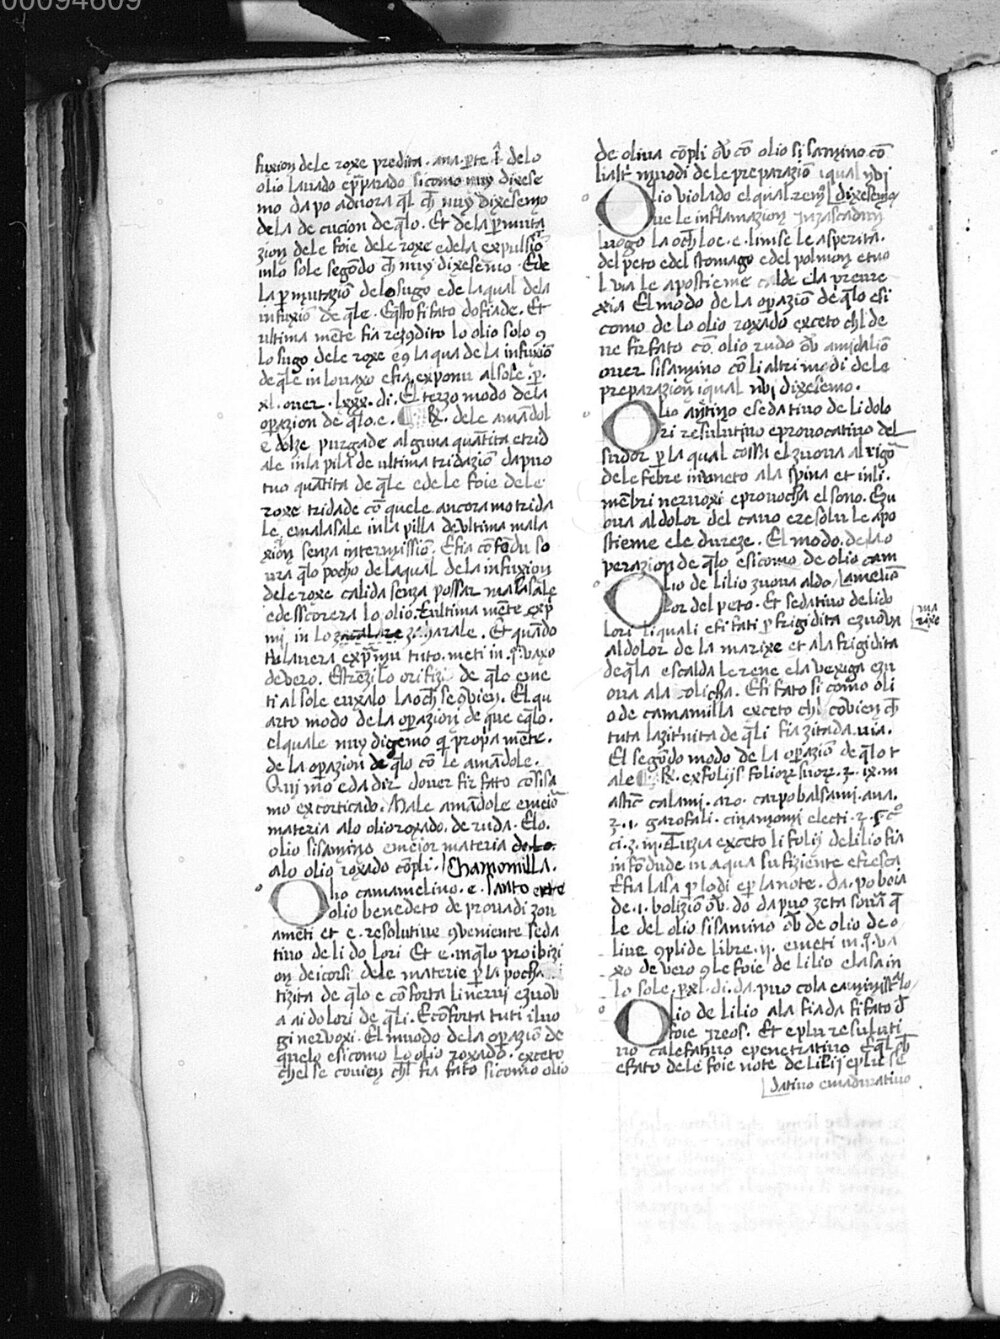 00094609
fuxion dele roxe predita. ana. pṛte .I. delo
olio lauado epṛparado sicomo nuy dixese
mo da po adnora ql cħ nuy dixesemo
dela de cucion de qłlo. Et dela pṛmuta
zion dele foie dele roxe edela expulsiō
inlo sole segōdo cħ nuy dixesemo. Ede
la pṛmutaziō delo sugo ede laqual dela
infuxiō de qłle. Eqsto si fato do fiade. Et
ultima mēte fia rexōdito lo olio solo 9
lo sugo dele roxe e 9 la qua de la infuxiō
de qłle in lo uaxo efia exponu al sole. p.
xl. ouer. lxxx. di. El terzo modo dela
opazion de qłlo. e. R. dele amādol
e dolze purgade alguna quātita etrid
ale inla pila de ultima tridaziō dapuo
tuo quātita de qłle ede le foie dele
roxe tridade cō quele ancora mo trida
le, emalasale inla pilla de ultima mala
xiōn senza intermissiō. Efia cōfōdu so
ura qłlo pocho de laqual dela infuxion
dele roxe calida senza possar malasale
edesscorera lo olio. Eultima mēte exp
mi in lo arale. Et quādo
tu lauera expṛmu tuto. meti in .j. uaxo
de uero. Estrezi lo orifizi de qłlo eme
ti al sole euxalo laocħ se 9uien. El qu
arto modo de la opazion de que eqłlo.
elquale nuy digemo q propa mēte.
de la opazion de qłlo cō le amādole.
Qui mo eda dir douer fir fato cōsisa
mo excorticado. Male amādole emeiō
materia alo olio roxado. de ruda. Elo.
olio sisamino emeior materia delo
alo olio roxado cōpli. Chamomilla.
Olio camamelino. e. santo
olio benedeto de prouadi zou
amēti et e. resolutiue 9ueniente seda
tiuo de li do lori Et e. in qłlo proibizi
on deicorsi dele materie pṛ la pocha
tizita de qłlo e cōforta li nerui ezuou
a ai dolori de qłli. Ecōforta tuti iluo
gi neruoxi. El muodo dela opaziō de
quelo esicomo lo olio roxado. exceto
chel se couien chł fia fato sicomo olio
de oliua cōpli oṽ cō olio sisamino cō
li altṛ muodi de le preparaziō iqual nui
Olio uiolado el qual remo dixesemo
ue le inflamazion
luogo laocħ loe. e. linise le asperita.
del peto edel stomago edel polmon etuo
l uia le apostieme calde ela preure
xia El modo de la opaziō de qłlo esi
como de lo olio roxado exceto chl de
ue fir fato cō olio rudo oṽ amidaliō
ouer sisamino cō li altri modi dela
preparazion iqual nui dixesemo.
Olio anetino esedatiuo de li dolo
ri resolutiuo eprouocatiuo del
sudor pṛ la qual cossa el zuoua al rigō
dele febre inuneto ala spina et inli.
mēbri neruoxi eprouocha el sono. Ezu
oua al dolor del cauo eresolue le apo
stieme ele dureze. El modo. de la o
perazion de qłlo esicomo de olio cam
Olio de lilio zuoua al do amelio
lor del peto. Et sedatiuo de li do
lori li quali esi fati pṛ frigidita ezuoua ma
rixe
al dolor de la marixe et ala frigidita
de qłla escalda le rene ela uexiga ezu
oua ala colicha. Efi fato si como oli
o de camamilla exceto chl couien cħ
tuta la zitrinita de qłli fia zitada uia.
El segōdo modo de la opaziō de qłlo t
ale R. ex folijs folior suor. ʒ. ix. m
astic calami. aro. carpobalsami. ana.
ʒ. i. garofali. cinamomi electi. ʒ.
ci. ʒ. iij. Tuzia exceto li folij de lilio fia
infōdude in aqua sufiziente efresca
Efia lasa pṛ lodi epṛ la note. da. po boia
de .i. boliziō oṽ. do da puo zeta soura q̄
le del olio sisamino oṽ de olio de o
liue 9plide libre. ij. emeti in .j. ua
xo de uero 9 le foie de lilio elasa in
lo sole. pṛ xl. di. da. puo cola
Olio de lilio ala fiada si fato d
foie jreos. Et eplu resoluti
uo calefatiuo epenetratiuo Eql
efato dele foie note de lilij eplu se
datiuo emaduratiuo